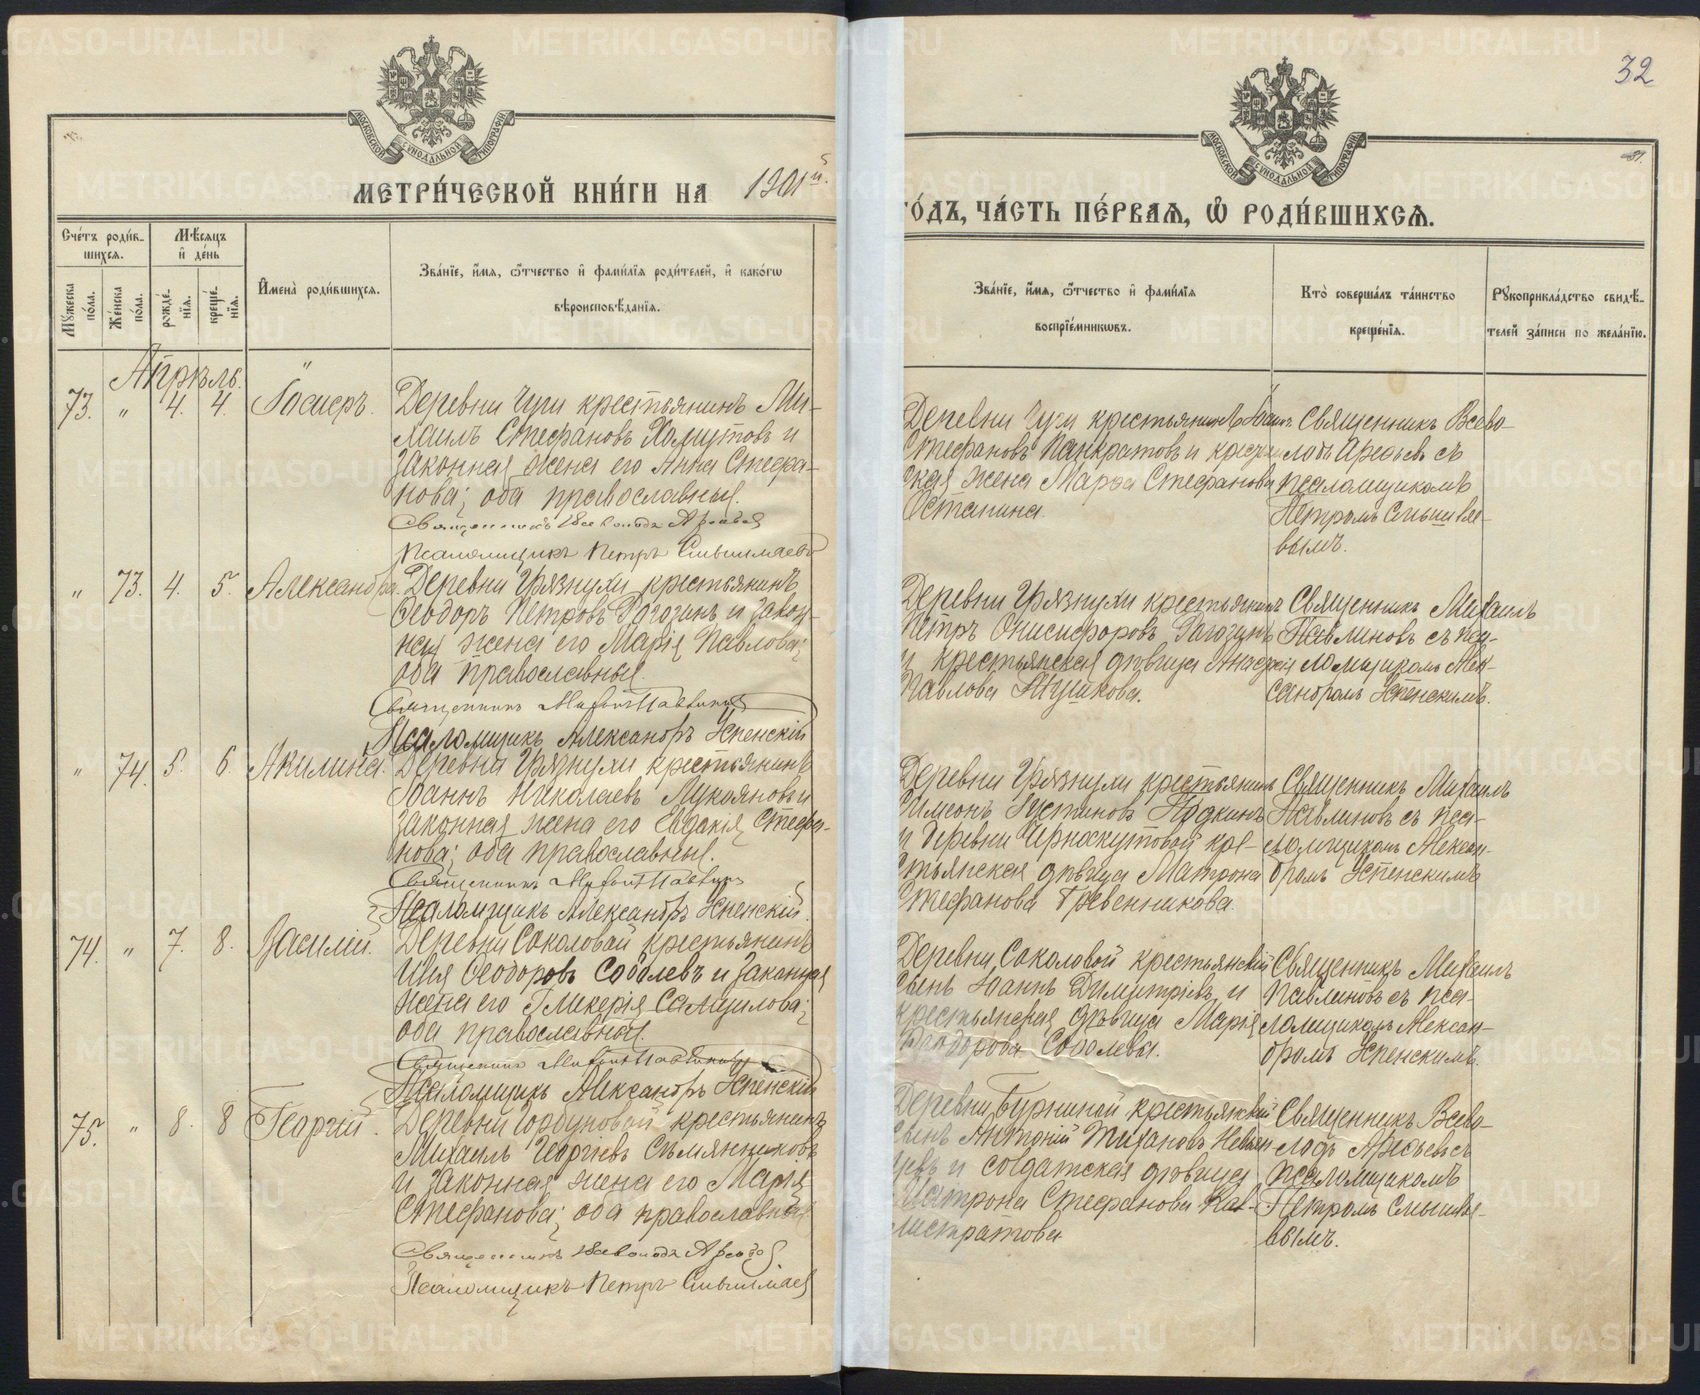 32
МЕТРИ́ЧЕСКОЙ КНИ́ГИ НА 1901й.
ГО́ДЪ, ЧА́СТЬ ПЕ́РВАЯ, Ѿ РОДИ́ВШИХСЯ.
МОСКОВСКОЙ СѴНОДАЛЬНОЙ ТИПОГРАФІИ
МОСКОВСКОЙ СѴНОДАЛЬНОЙ ТИПОГРАФІИ
Сче́тъ роди́в-
шихся.
Мѣсяцъ
и҆ де́нь
Мꙋжеска по́ла.
Же́нска по́ла.
рожде́нїя.
креще́нїя.
И҆мена̀ роди́вшихся.
Зва́нїе, и҆́мя, ѻ҆́тчество и҆ фами́лїя роди́телей, и҆ како́гѡ
вѣроисповѣ́данїя.
Зва́нїе, и҆́мя, ѻ҆́тчество и҆ фами́лїя
воспрїе́мникѡвъ.
Кто̀ соверша́лъ та́инство
креще́нїя.
Рꙋкоприкла́дство свидѣ́-
телей за́писи по жела́нїю.
Апрѣль.
73. " 4. 4. Іосифъ.
Деревни Чуги крестьянинъ Ми-
хаилъ Стефановъ Хомутовъ и
законная жена его Анна Стефа-
нова; оба православные.
Священникъ Всеволодъ Арефьев
Псаломщикъ Петръ Смышляевъ
Деревни Чуги крестьянинъ
Стефановъ Панкратовъ и крестьян
ская жена Марѳа Стефанова
Останина.
Священникъ Всево-
лодъ Арефьевъ съ
псаломщикомъ
Петромъ Смышляе-
вымъ.
" 73. 4. 5. Александра.
Деревни Грязнухи крестьянинъ
Ѳеодоръ Петровъ Рогозинъ и закон-
ная жена его Марія Павлова;
оба православные.
Священникъ Михаилъ Павлиновъ
Псаломщикъ Александръ Успенскій
Деревни Грязнухи крестьянинъ
Петръ Онисифоровъ Рогозинъ
и крестьянская дѣвица
Павлова
Священникъ Михаилъ
Павлиновъ съ пса-
ломщикомъ Алек-
сандромъ Успенскимъ.
" 74. 5. 6. Акилина.
Деревни Грязнухи крестьянинъ
Іоаннъ Николаевъ Лукояновъ и
законная жена его Евдокія Стефа-
нова; оба православные.
Священникъ Михаилъ Павлиновъ
Псаломщикъ Александръ Успенскій.
Деревни Грязнухи крестьянинъ
Симеонъ Іустиновъ
и деревни Черноскутовой кре-
стьянская дѣвица Матрона
Стефанова Гребенникова.
Священникъ Михаилъ
Павлиновъ съ пса-
ломщикомъ Алексан-
дромъ Успенскимъ
74. " 7. 8. Василій.
Деревни Соколовой крестьянинъ
Илія Ѳеодоровъ Соболевъ и законная
жена его Гликерія Самуилова;
оба православные.
Священникъ Михаилъ Павлиновъ
Псаломщикъ Александръ Успенскій
Деревни Соколовой крестьянскій
сынъ Іоаннъ Димитріевъ и
крестьянская дѣвица Марія
Ѳеодорова Соболевы.
Священникъ Михаилъ
Павлиновъ съ пса-
ломщикомъ Алексан-
дромъ Успенскимъ.
75. " 8. 8 Георгій.
Деревни Горбуновой крестьянинъ
Михаилъ Георгіевъ Сѣмянниковъ
и законная жена его Марія
Стефанова; оба православные
Священникъ Всеволодъ Арефьев
Псаломщикъ Петръ Смышляев
Деревни крестьянскій
сынъ Антоній Тихановъ
и солдатская дѣвица
Матрона Стефанова Кал-
истратова
Священникъ Всево-
лодъ Арефьевъ съ
псаломщикомъ
Петромъ Смышляе-
вымъ.
METRIKI.GASO-URAL.RU